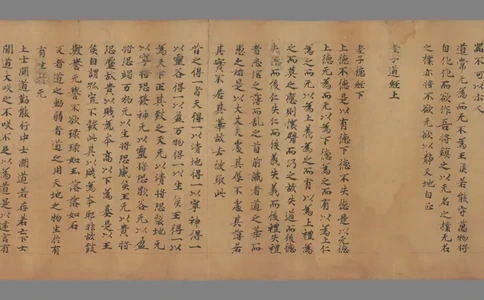 器不可以示人
道常无為而无不為王侯若能守萬物將
自化化而欲作吾將鎮之以无名之樸无名
之樸亦將不欲无欲以靜天地自正
老子道經上
老子德經下
上德不德是以有德下德不失德是以无德
上德无為而无以為下德為之而有以為上仁
為之而无以為上義為之而有以為上禮為
之而莫之應則攘臂而仍之故失道而後德
失德而後仁失仁而後義失義而後禮夫禮
者忠信之薄而亂之首前識者道之華而
愚之始是以大丈夫處其厚不處其薄居
其實不居其華故去彼取此
昔之得一者天得一以清地得一以寧神得一
以靈谷得一以盈万物得一以生侯王得一
以為天下正其致之天无以清將恐裂地无
以寧將恐發神无以靈將恐歇谷无以盈
將恐竭万物无以生將恐滅侯王无以貴將
恐蹷故貴以賤為本高以下為基是以王
侯自謂孤寡不轂此其以賤為本耶非故致
數譽无譽不欲琭琭如玉落落如石
反者道之動弱者道之用天地之物生於有
有生於无
上士聞道勤能行中士聞道若存若亡下士
聞道大咲之不咲不足以為道是以建言有